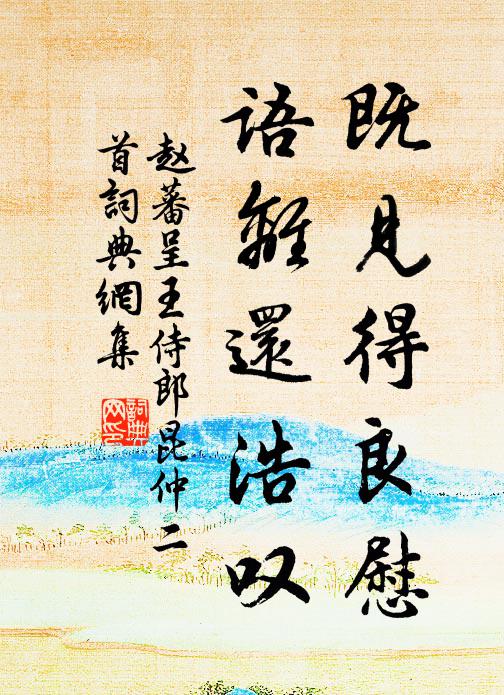 既見得良慰
語離還浩叹
赵蕃呈王侍郎昆仲二
首詞典網集
詞典
网印